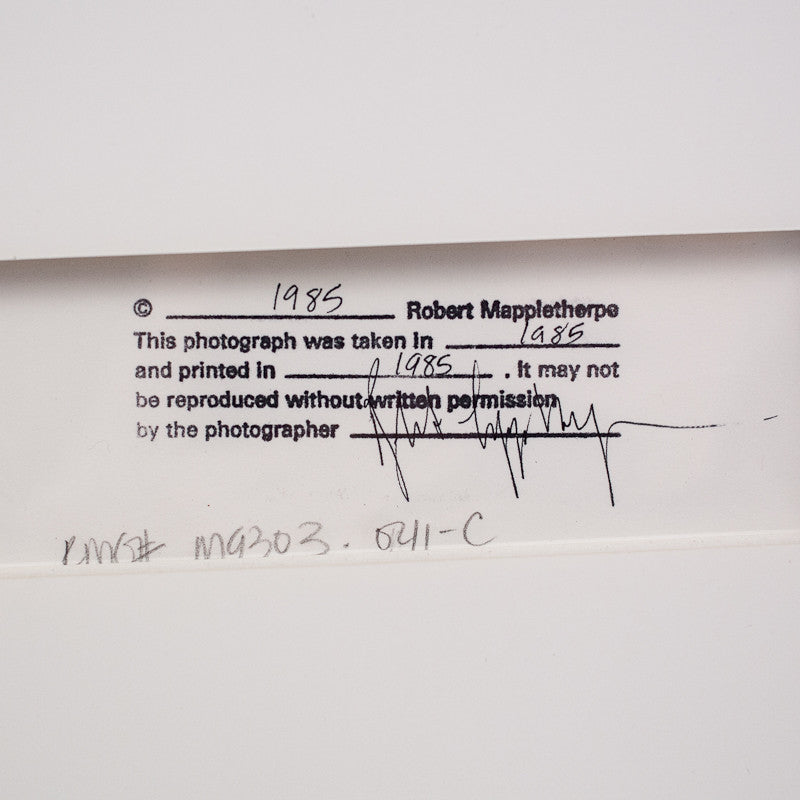 © 1985 Robert Mapplethorpe
This photograph was taken in 1985
and printed in 1985. It may not
be reproduced without written permission
by the photographer
M9303.041-C